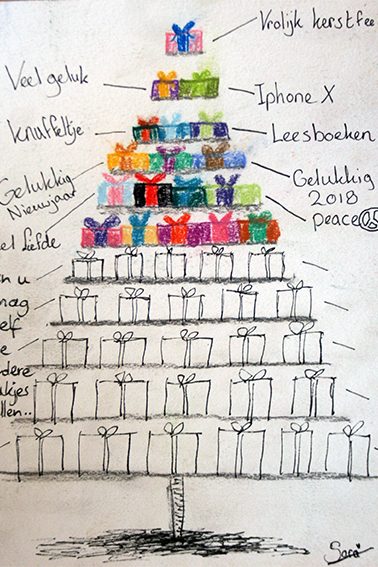 Vrolijk kerstfee
Veel geluk
Iphone X
Knuffeltje
Leesboeken
Gelukkig
Nieuwjaar
Gelukkig
2018
peace
el liefde
n u
mag
elf
e
dere
akjes
llen..
Sara